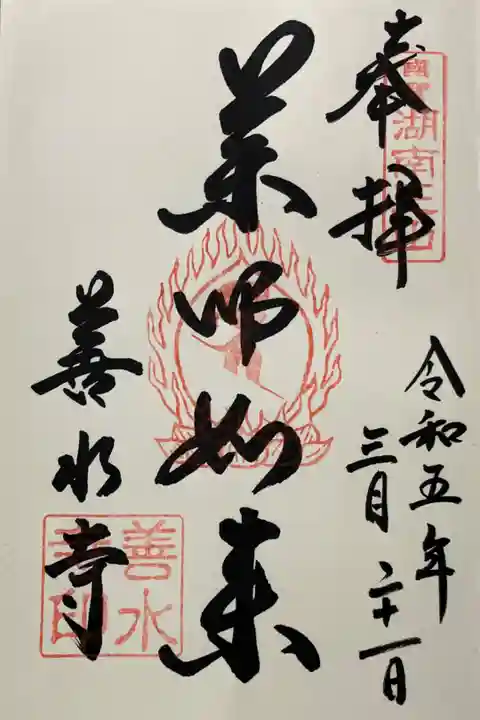 奉拝
國寶湖南三山
令和五年
三月二十一日
薬師如来
善水寺
善水寺印